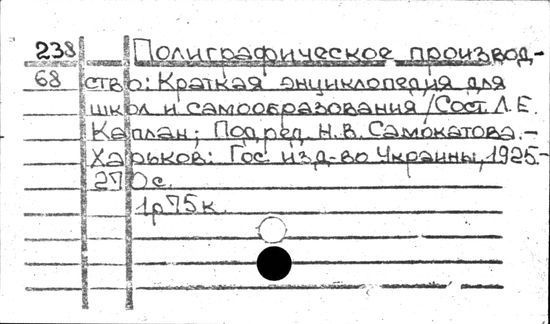 238 Полиграфическое производ-
68 ство: Краткая энциклопедия для
школ и самообразования/Сост. Л.Е.
Каплан; Под ред. Н.В. Самокатова.-
Харьков: Гос. изд-во Украины, 1925.-
270 с.
1р75к.